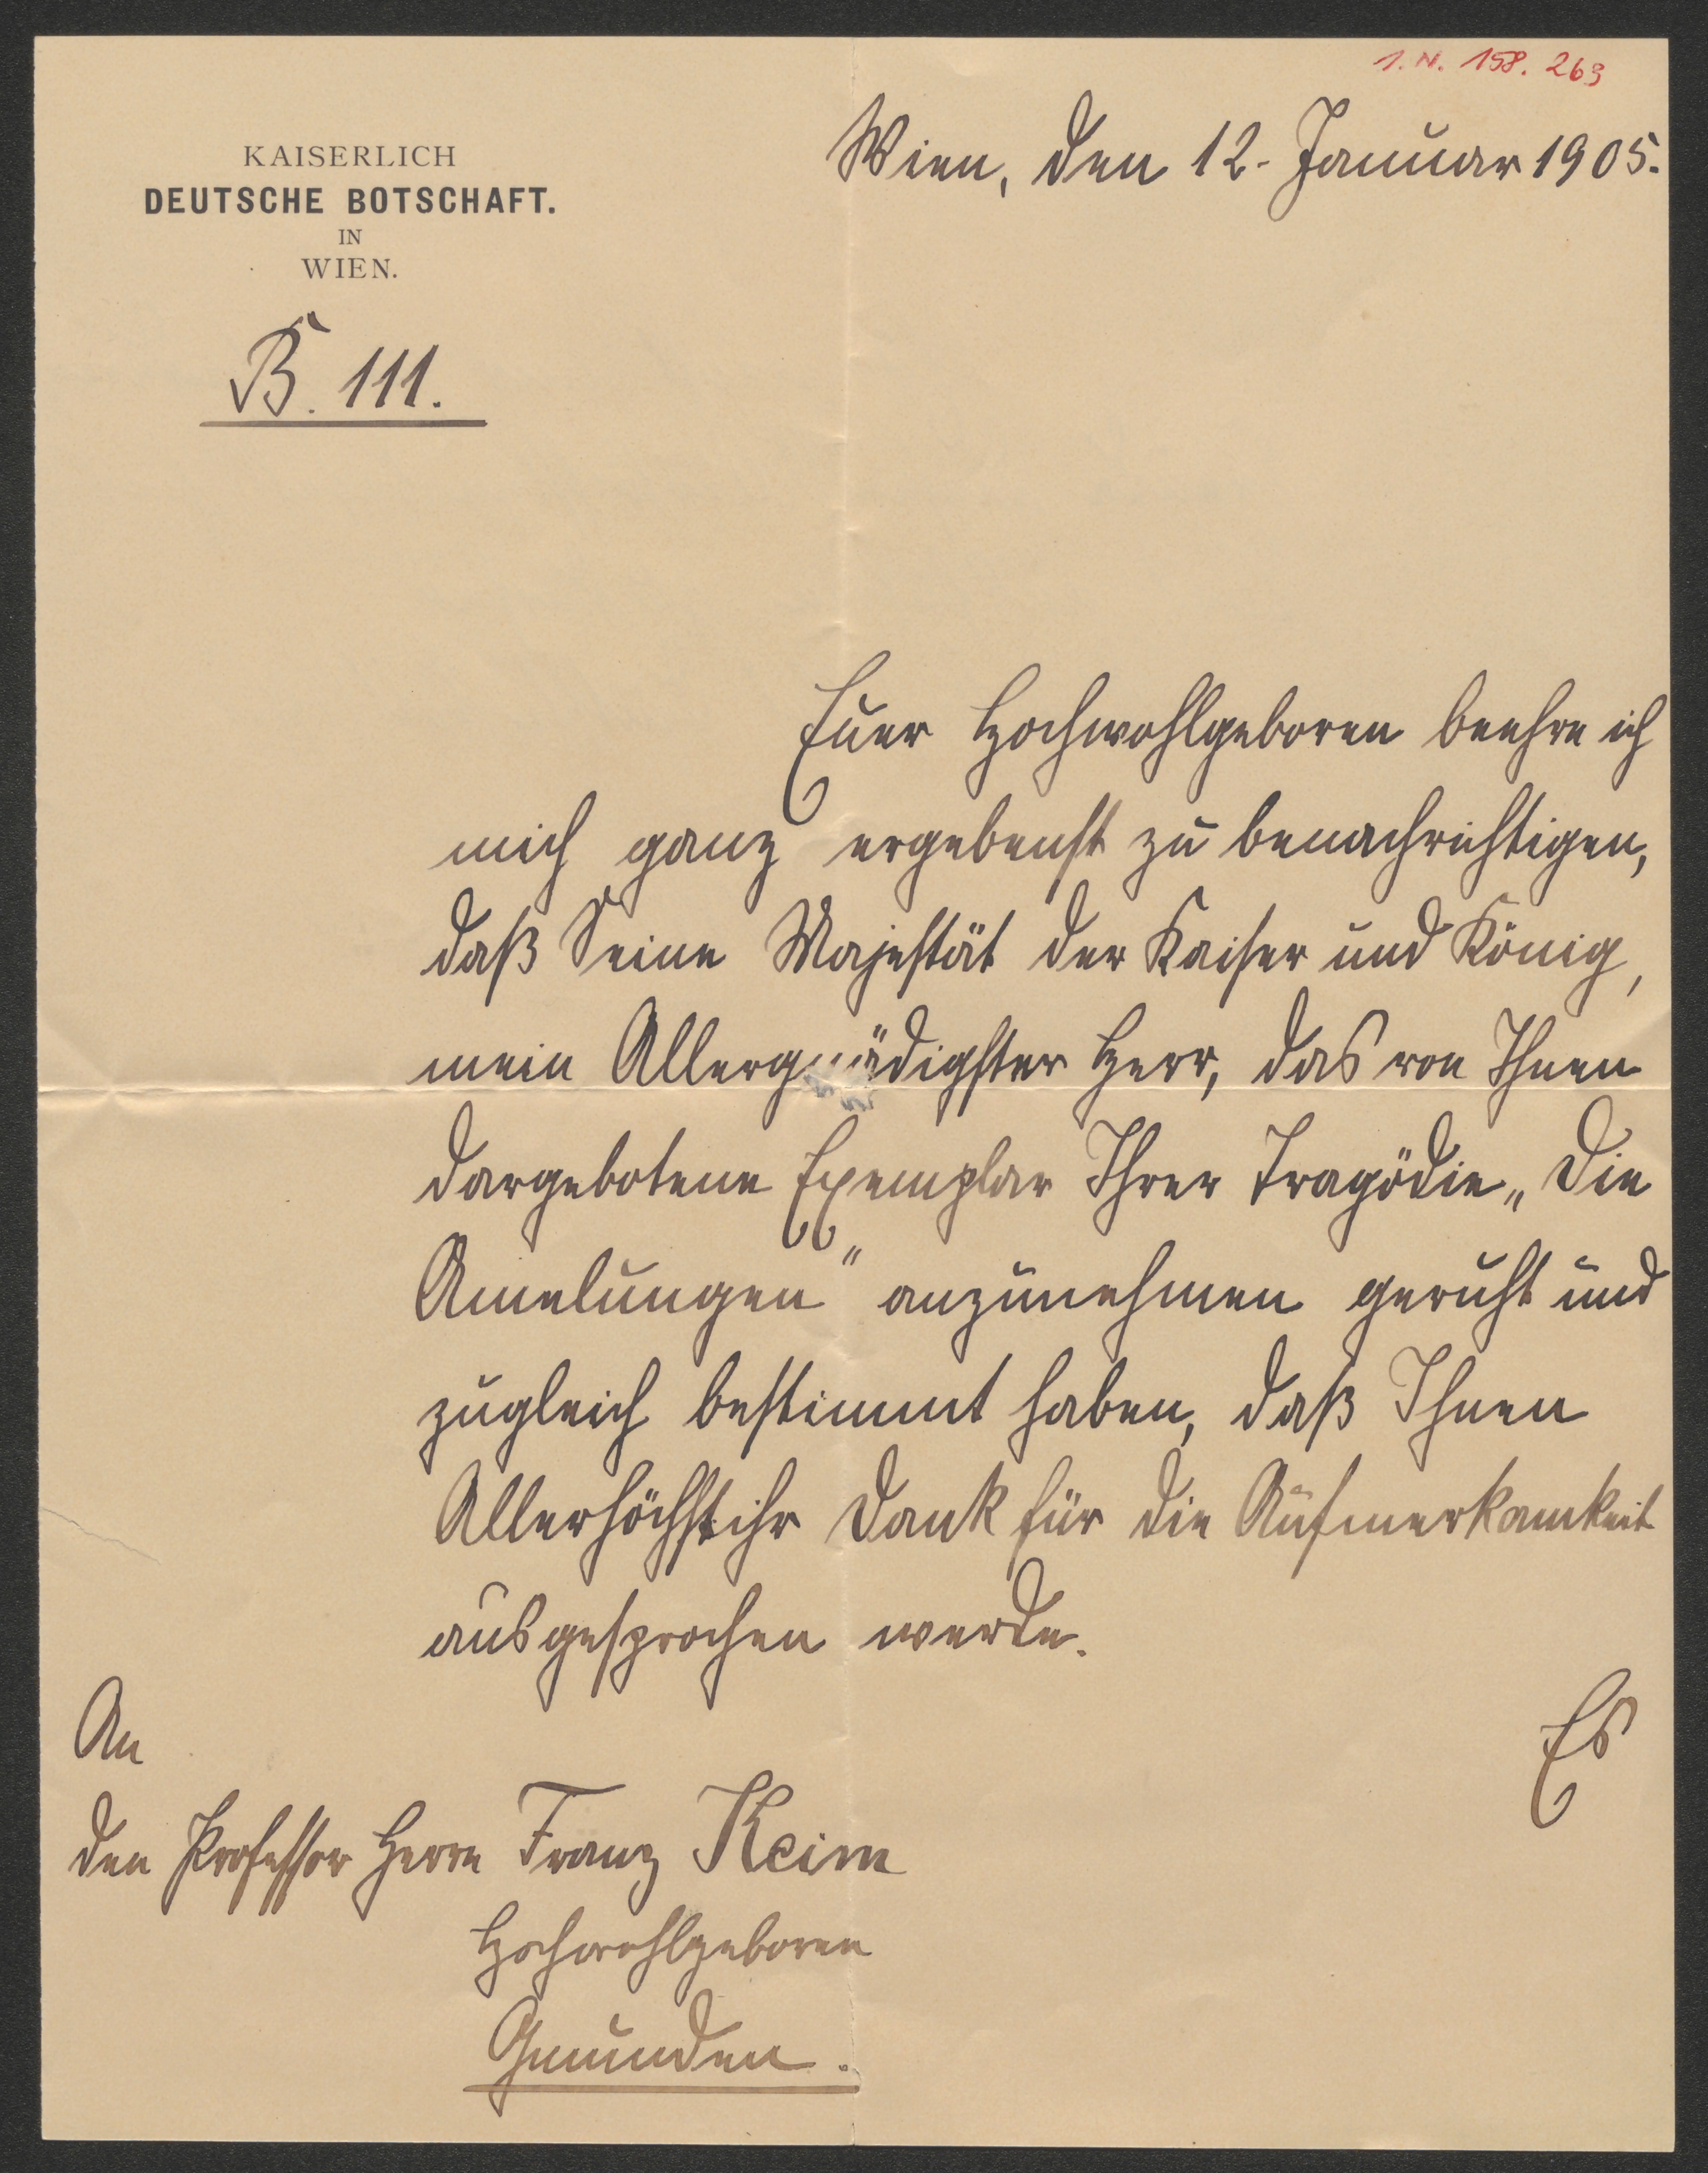 I. N. 158.263
KAISERLICH
DEUTSCHE BOTSCHAFT.
IN
WIEN.
B. 111.
Wien, den 12. Januar 1905.
Euer Hochwohlgeboren beehre ich
mich ganz ergebenst zu benachrichtigen,
daß Seine Majestät der Kaiser und König,
mein Allergnädigster Herr, das von Ihnen
dargebotene Exemplar Ihrer Tragödie „Die
Amelungen" anzunehmen geruht und
zugleich bestimmt haben, daß Ihnen
Allerhöchstihr Dank für die Aufmerkamkeit
ausgesprochen werde.
Es
An
den Professor Herrn Franz Keim
Hochwohlgeboren
Gmunden.